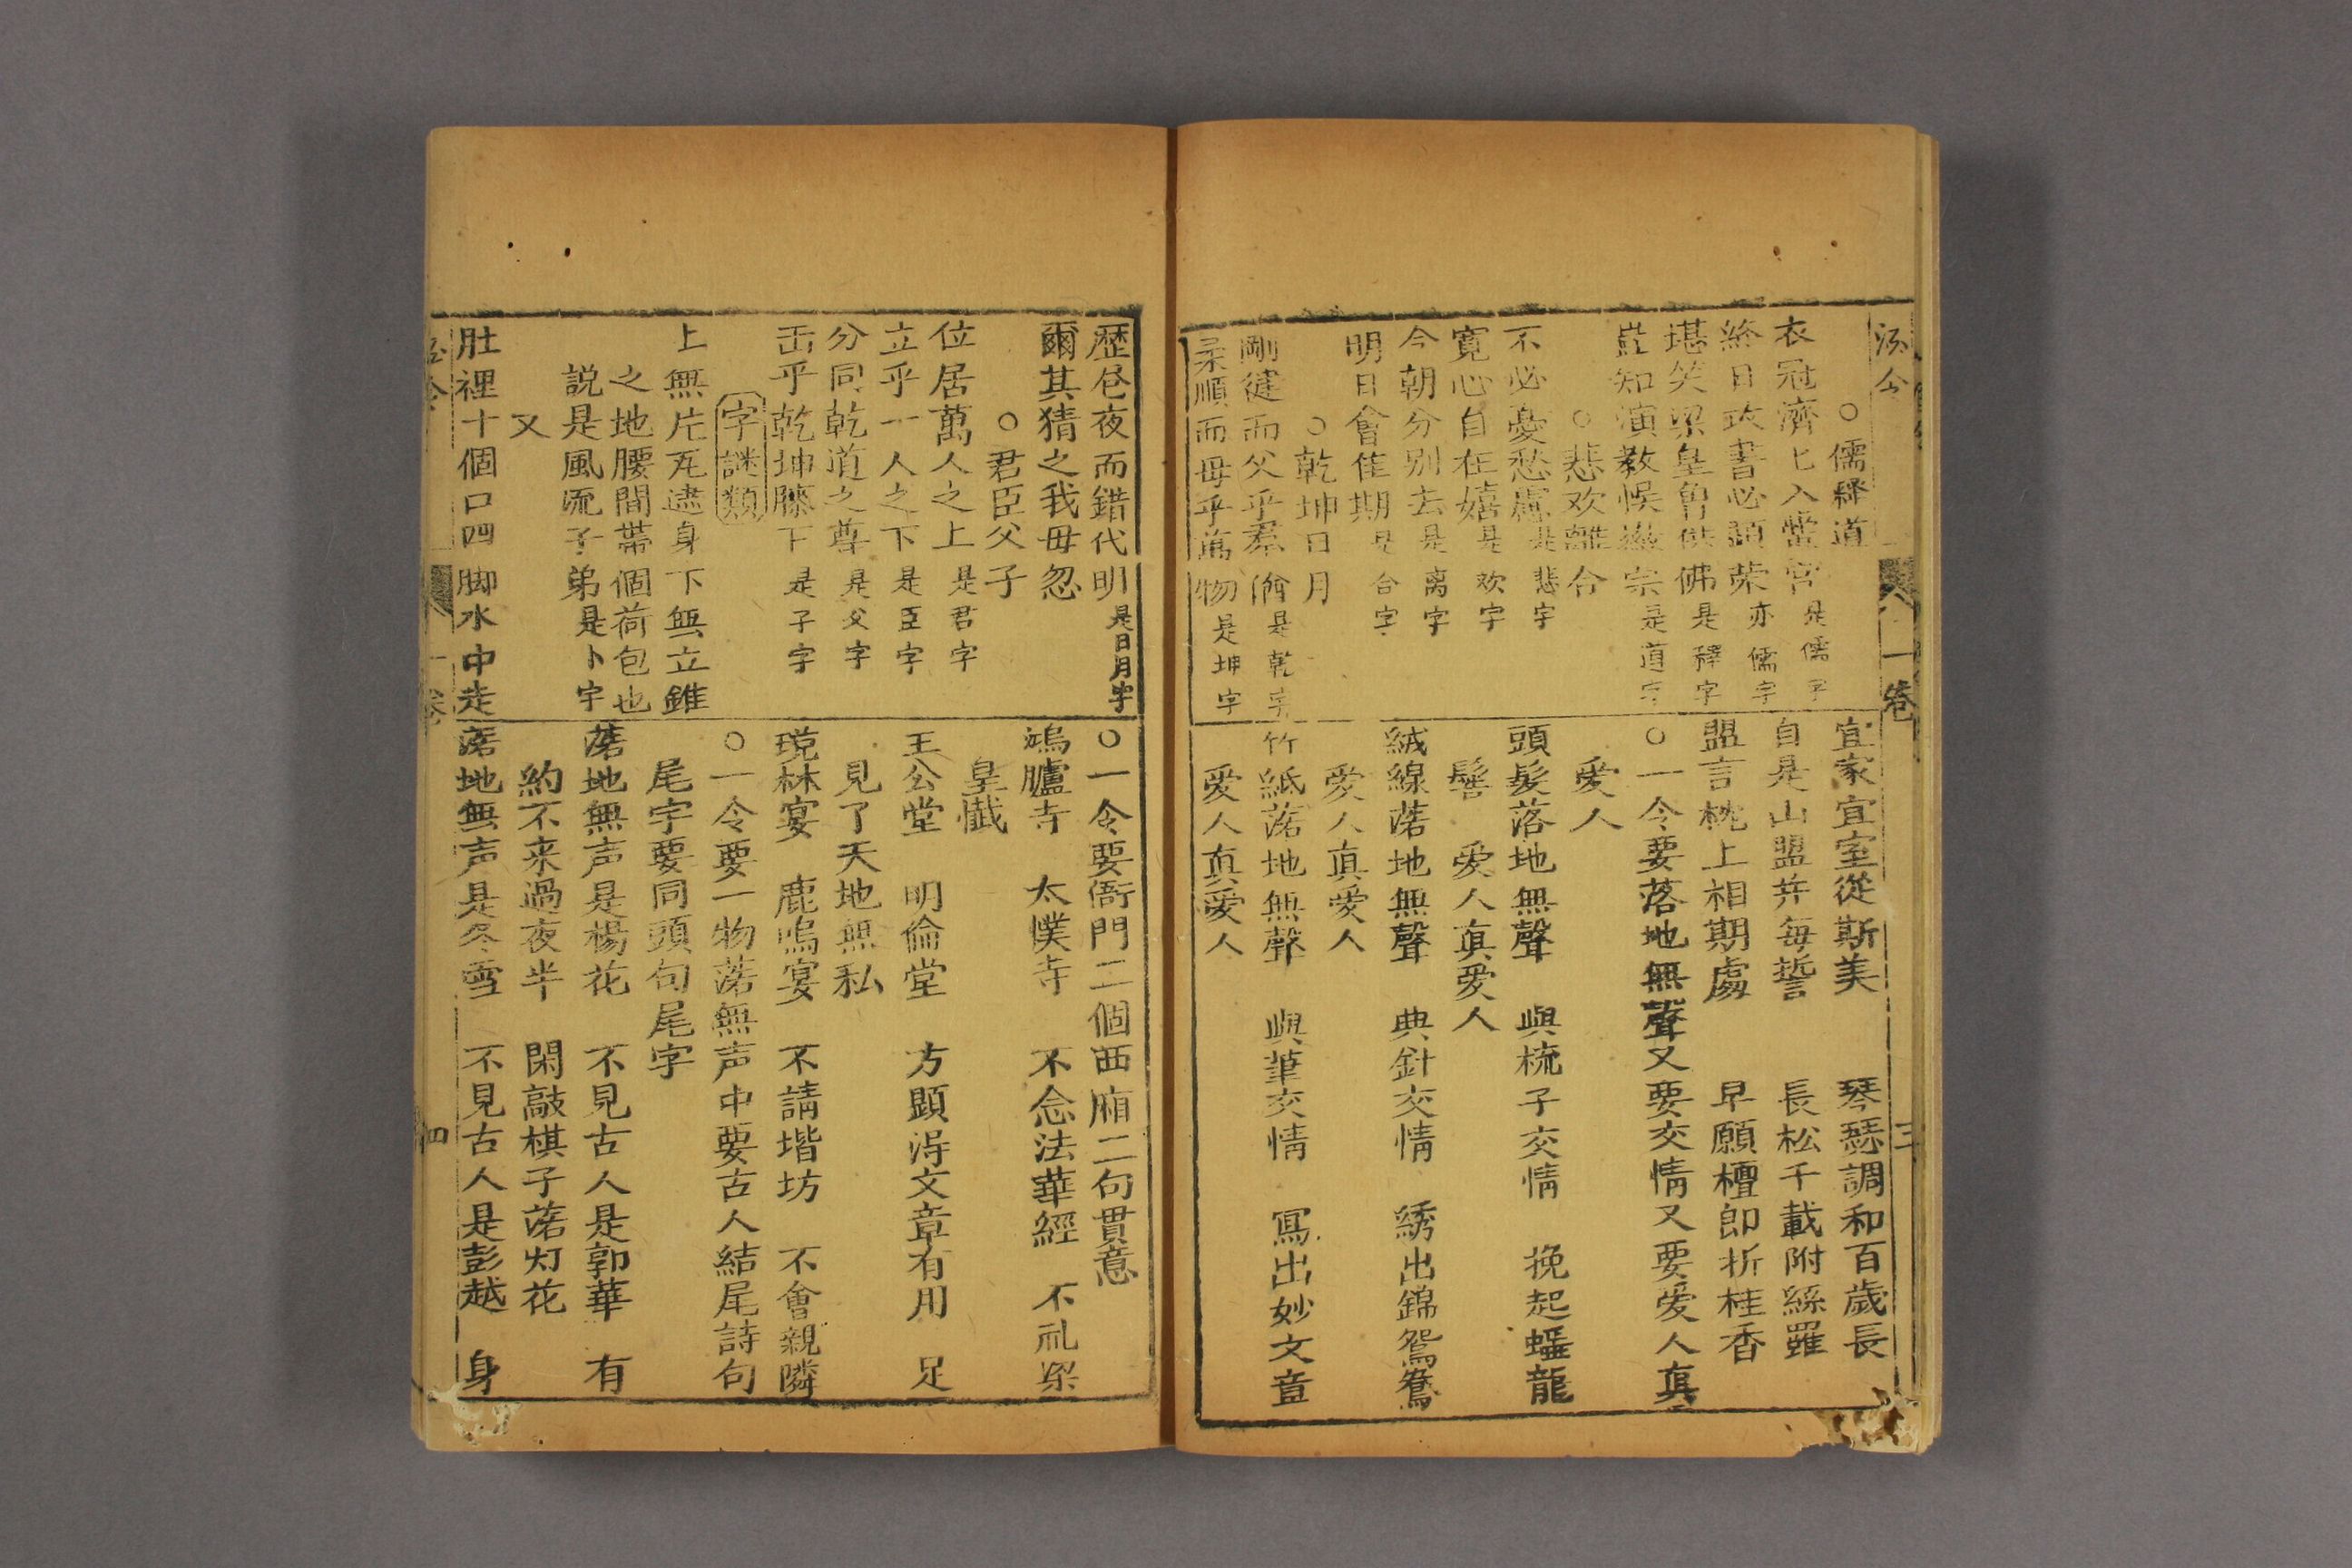 ○儒釋道
衣冠濟匕入黌宮是儒字
終日攻書必顕荣亦儒字
堪笑梁皇曽供佛是釋字
豈知演教悞徽宗是道字
○悲欢離合
不必憂愁慮是悲字
寛心自在嬉是欢字
今朝分别去是离字
明日會佳期是合字
○乾坤日月
剛健而父乎羣是乾字
柔順而母乎萬物是坤字
宜家宜室從斯美 琴瑟調和百歳長
自是山盟并每誓 長松千載附絲羅
盟言枕上相期處 早願檀郎折桂香
○一令要落地無聲又要交情又要爱人真
爱人
頭髮落地無聲 與梳子交情 挽起蟠龍
髻 爱人真爱人
絨線落地無聲 典針交情 綉出錦鴛鴦
爱人真爱人
竹紙落地無聲 與筆交情 寫出妙文章
爱人真爱人
歴昼夜而錯代明是日月字
爾其猜之我毋忽
○君臣父子
位居萬人之上是君字
立乎一人之下是臣字
分同乾道之尊是父字
出乎乾坤膝下是子字
字謎類
上無片瓦遮身下無立錐
之地腰間帶個荷包也
説是風流子弟是卜字
又
肚裡十個口四脚水中走
○一令要衙門二個西廂二句貫意
鴻臚寺 太僕寺 不念法華經 不礼梁
皇懺
王公堂 明倫堂 方顕淂文章有用 足
見了天地無私
瓊林宴 鹿鳴宴 不請堦坊 不會親隣
○一令要一物落無声中要古人結尾詩句
尾字要同頭句尾字
落地無声是楊花 不見古人是郭華 有
約不来過夜半 閑敲棋子落灯花
落地無声是冬雪 不見古人是彭越 身
一卷
三
四